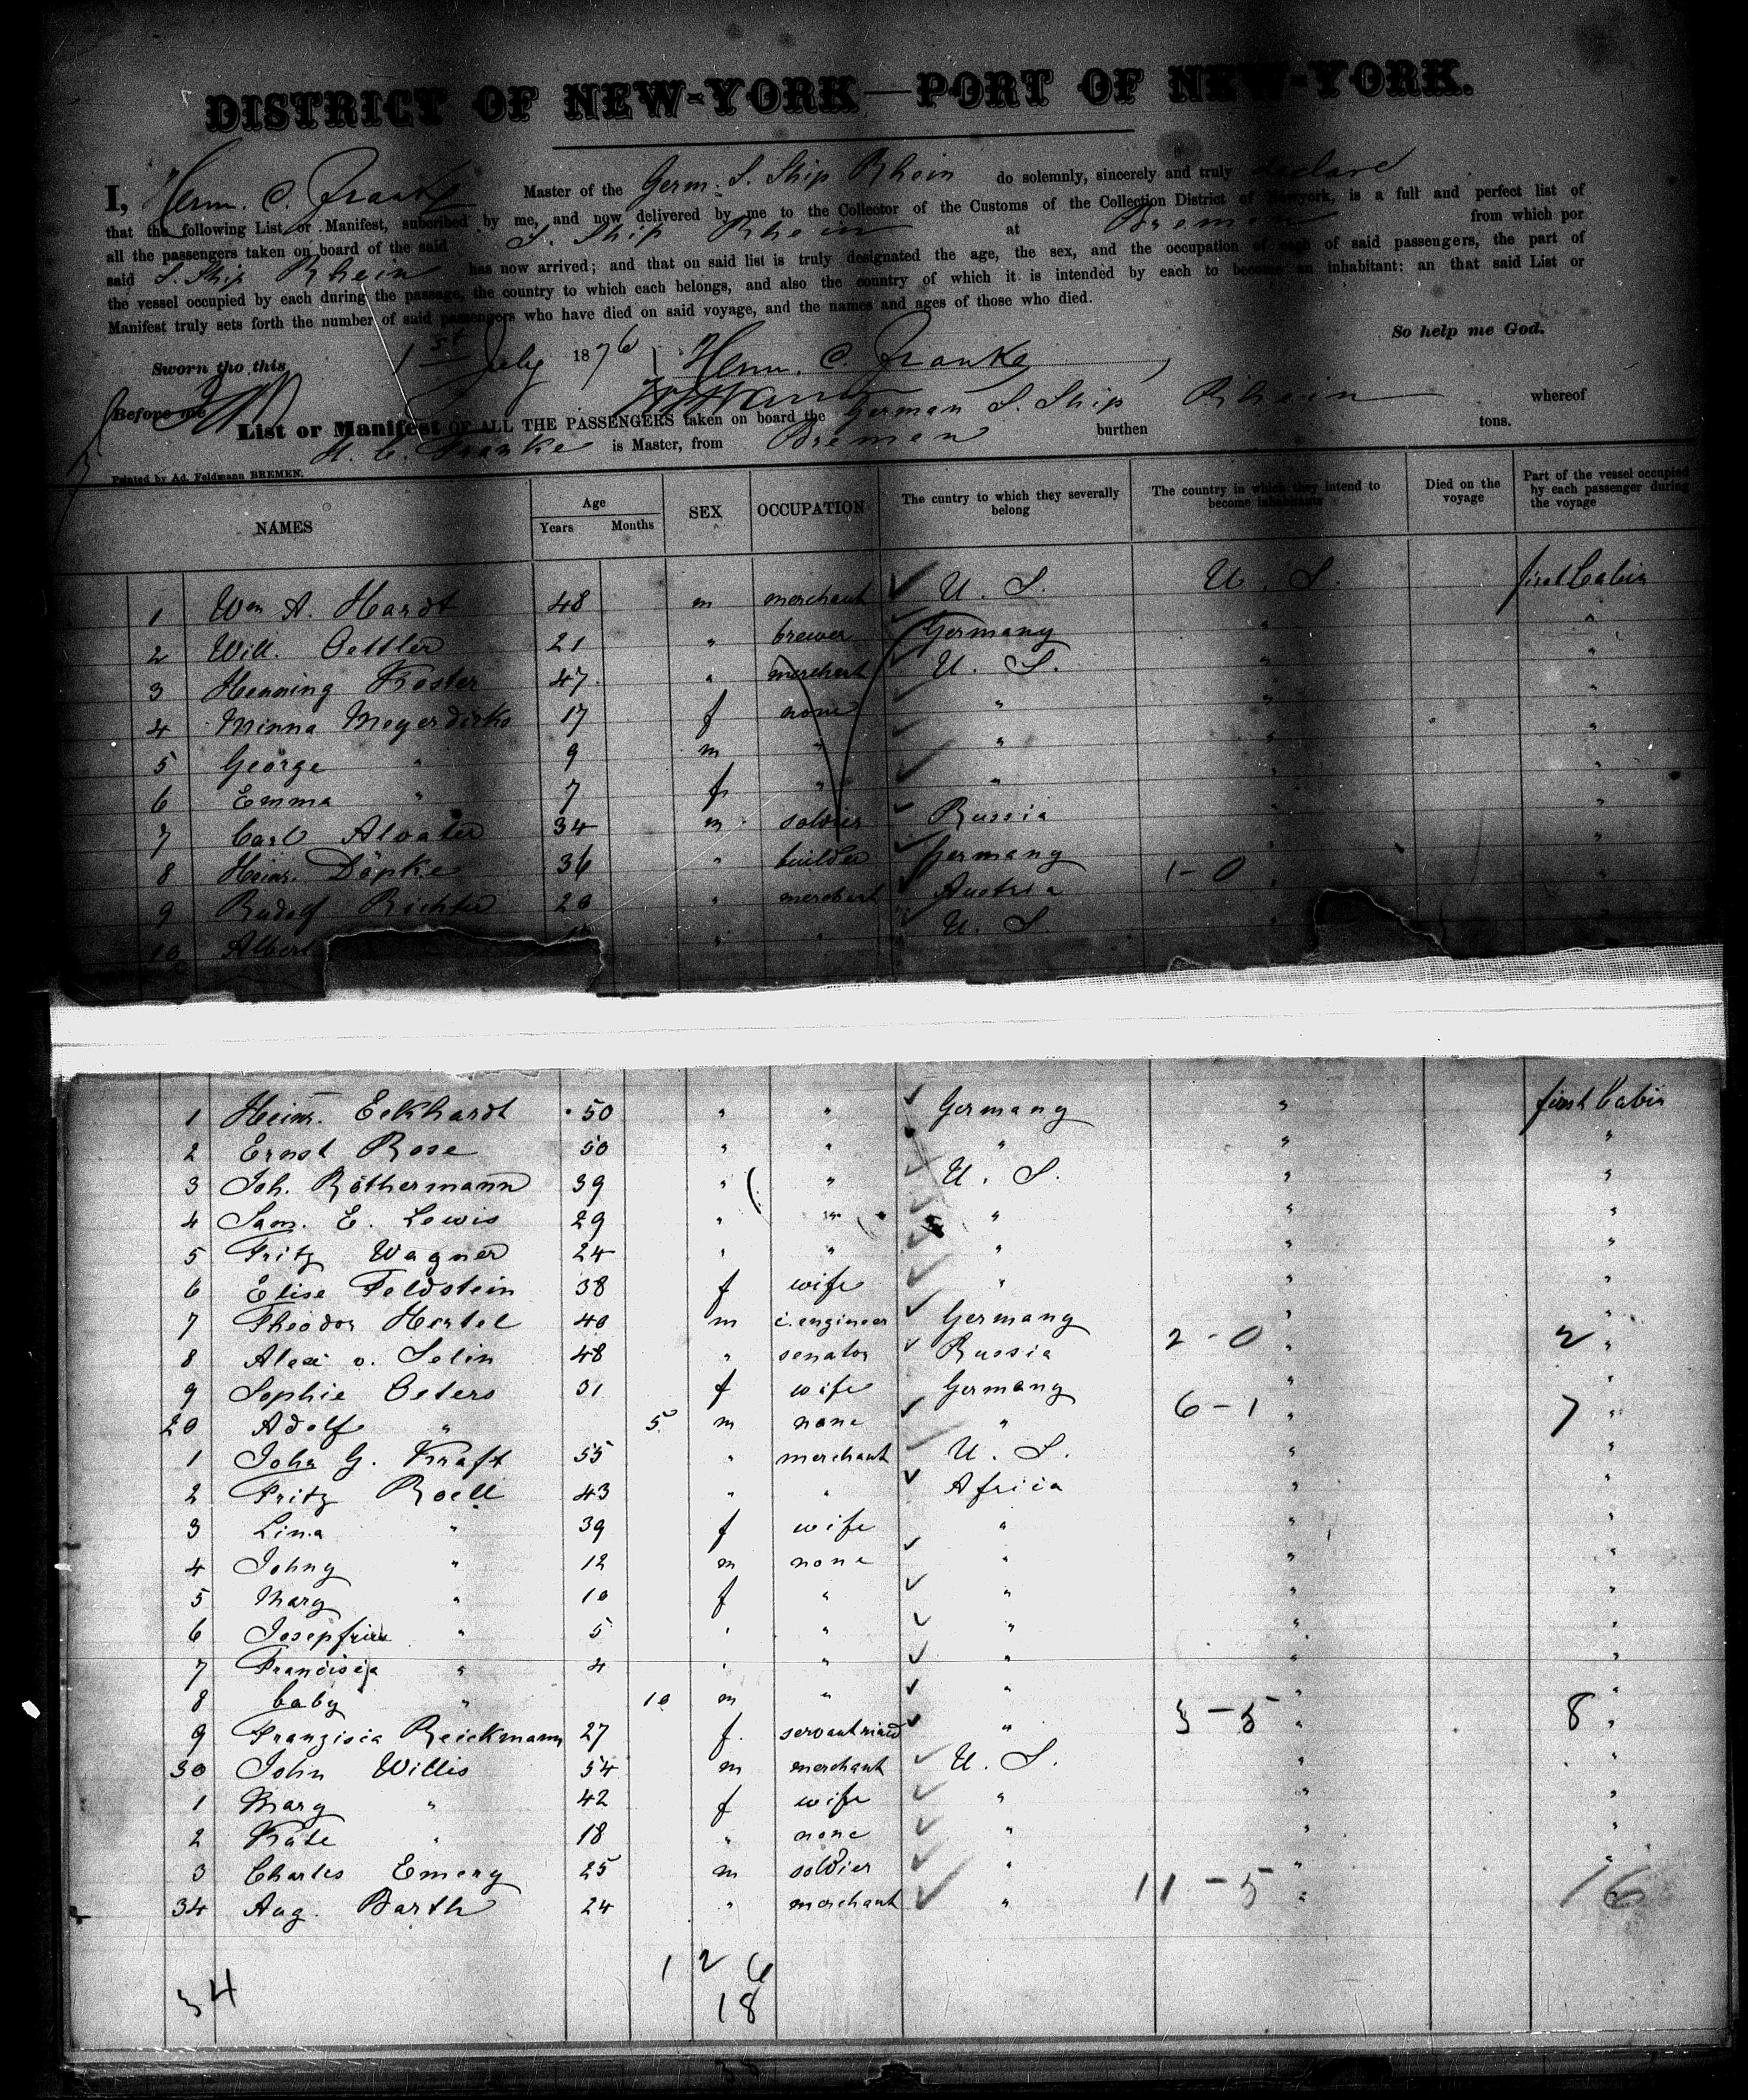 DISTRICT OF NEW-YORK—PORT OF NEW-YORK.
I, Herm. C. Franke Master of the Germ. S. Ship Rhein do solemnly, sincerely and truly declare
that the following List or Manifest, subcribed by me, and now delivered by me to the Collector of the Customs of the Collection District of Newyork, is a full and perfect list of
all the passengers taken on board of the said S. Ship Rhein at Bremen from which por
said S. Ship Rhein has now arrived; and that on said list is truly designated the age, the sex, and the occupation of each of said passengers, the part of
the vessel occupied by each during the passage, the country to which each belongs, and also the country of which it is intended by each to become an inhabitant: an that said List or
Manifest truly sets forth the number of said passengers who have died on said voyage, and the names and ages of those who died.
So help me God.
Sworn tho this 1st July 1876 Herm. C. Franke
Before me
List or Manifest OF ALL THE PASSENGERS taken on board the German S. Ship Rhein whereof
H. C. Franke is Master, from Bremen burthen tons.
Printed by Ad. Feldmann BREMEN.
NAMES Age Years Months SEX OCCUPATION The cuntry to which they severally belong The country in which they intend to become inhabitants Died on the voyage Part of the vessel occupied by each passenger during the voyage
1 Wm A. Hardt 48 m merchant U. S. U. S. first Cabin
2 Will. Oettler 21 " brewer Germany " "
3 Henning Koster 47 " merchant U. S. " "
4 Minna Meyerdirks 17 f none " " "
5 George " 9 m " " " "
6 Emma " 7 f " " " "
7 Carl Alvater 34 m soldier Russia " "
8 Heinr. Döpke 36 " builder Germany " "
9 Rudolf Richter 20 " merchant Austria 1-0 " "
10 Albert " " U. S. " "
1 Heinr. Eckhardt 50 " " Germany " first Cabin
2 Ernst Rose 50 " " " " "
3 Joh. Röthermann 39 " " U. S. " "
4 Sam. E. Lewis 29 " " " " "
5 Fritz Wagner 24 " " " " "
6 Elise Feldstein 38 f wife " " "
7 Theodor Hertel 40 m c. engineer Germany " "
8 Alex v. Selin 48 " senator Russia 2-0 " 2 "
9 Sophie Oeters 31 f wife Germany " "
20 Adolf " 5 m none " 6-1 " 7 "
1 John G. Kraft 55 " merchant U. S. " "
2 Fritz Roell 43 " " Africa " "
3 Lina " 39 f wife " " "
4 Johny " 12 m none " " "
5 Mary " 10 f " " " "
6 " 5 " " " " "
7 " 4 " " " " "
8 baby " 10 m " " " "
9 Franzisca Reickmann 27 f. servantmaid " 3-5 " 8 "
30 John Willis 54 m merchant U. S. " "
1 Mary " 42 f wife " " "
2 Kate " 18 " none " " "
3 Charles Emery 25 m soldier " " "
34 Aug. Barth 24 " merchant " 11-5 " 16
1 2 6
34 18